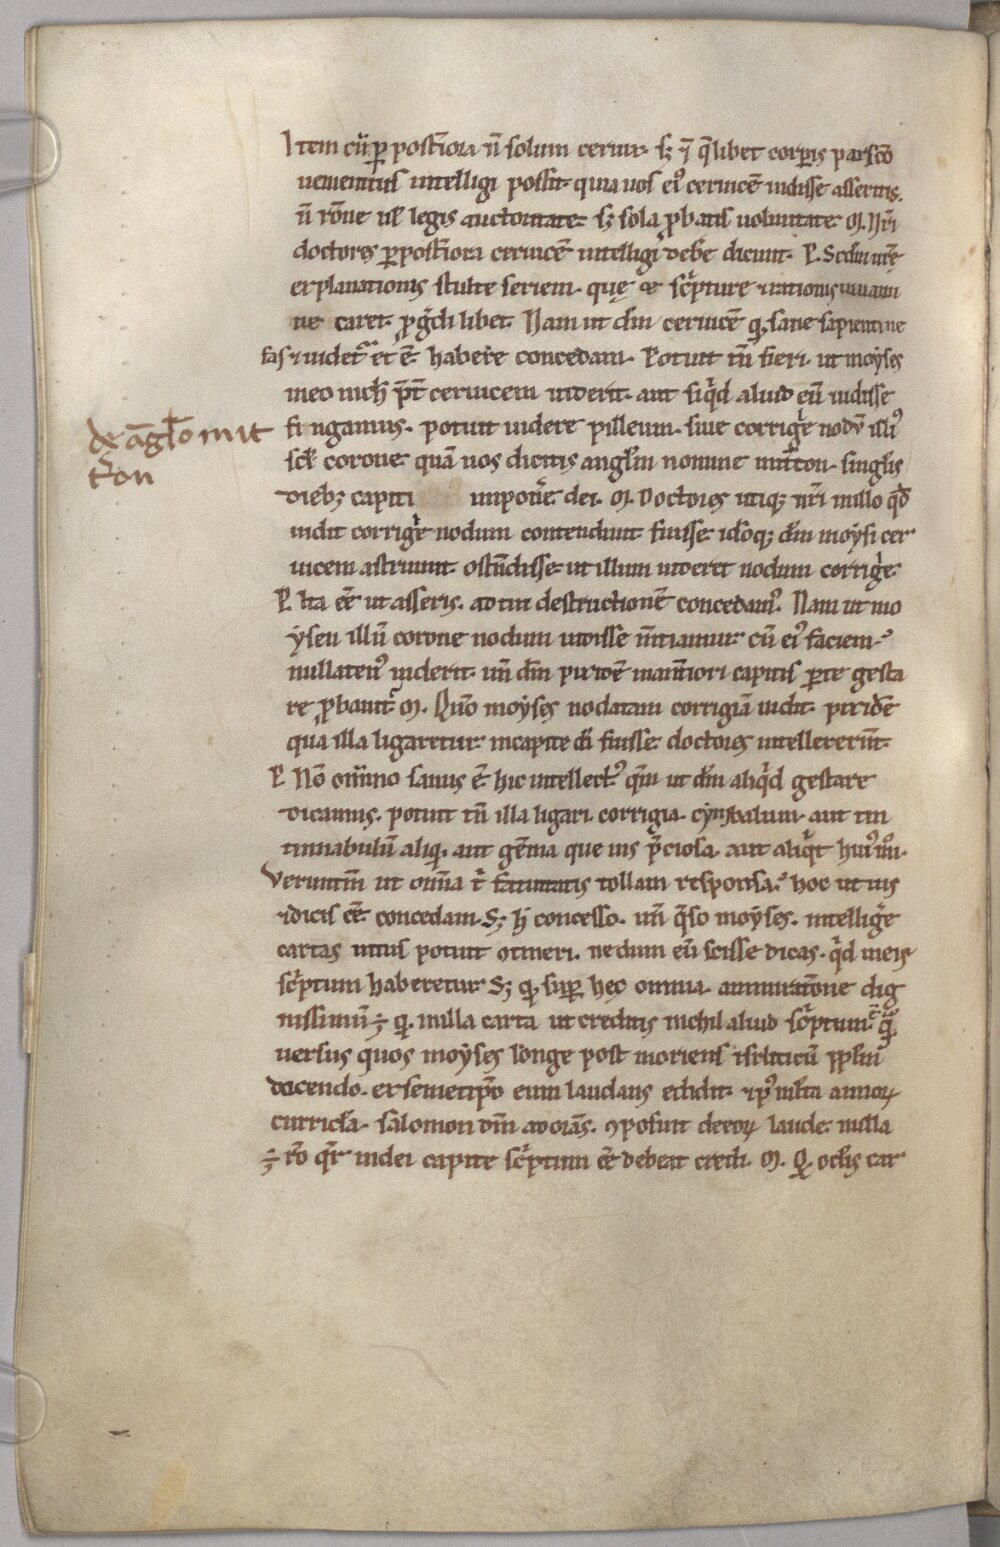 Item cū p̱ post̄iora n̄ solum ceruix. sꝫ ⁊ q̄libet corꝑis pars cō
uenientius intelligi possit. quia uos eiꝰ ceruicē uidisse asseritis.
n̄ rōne uł legis auctoritate. sꝫ sola ꝓbatis uoluntate. M. Nr̄i
doctores ꝑ post̄iora ceruicē intelligi debe͛ dicunt. P. Scdm ur̄ę
explanationis stulte seriem. quę & sc̓pture
ne caret. Nam ut dm̄ ceruicē sane sapientiue
habere concedam. Potuit tn̄ fieri. ut moyses
meo nich̄ p̄t ceruicem uiderit. aut siq̇d aliud eū uidisse
de āgl̄o mit
t̄ron
fingamus. potuit uidere pilleum. siue corrigię nodū illiꝰ
scł corone. quā uos dicitis angl̄m nomine mit̄ron. singl̄is
diebꝫ capiti imponē dei. M. Doctores utiqꝫ nr̄i nullo q̄d
uidit corrigię nodum contendunt fuisse. idōqꝫ dm̄ moysi cer
uicem astruunt. ostēndisse ut illum uideret nodum corrigię.
P. Ita eē ut asseris. ad tui destructionē concedamꝰ. Nam ut mo
ysen illū corone nodum uidisse m̄tiamur cū eiꝰ faciem
nullatenꝰ uiderit. un̄ dm̄ pixidē in ant̄iori capitis ꝑte gesta
re ꝓbauit᷑. M. Quō moyses nodatam corrigiā uidit. pixidē
qua illa ligaretur. in capite di fuisse doctores intellexerūt.
P. Nō omīno sanus ē hic intellectꝰ qm̄ ut dm̄ aliq̇d gestare
dicamus. potuit tn̄ illa ligari corrigia. cymbalum. aut tin
tinnabulū aliq. aut gēma que uis p̄ciosa. aut aliq̇t huiꝰ m̊i.
Veruntm̄ ut omīa t̄ fatuitatis tollam responsa. hoc ut uis
⁊ dicis eē. concedam. Sꝫ h̄ concesso. un̄ q̄so moyses. intelligę
cartas intus potuit ꝯtineri. nedum eū scisse dicas. q̇d in eis
sc̓ptum haberetur. Sꝫ q. suꝑ hęc omnia. ammiratione dig
nissimū ÷ q. in illa carta ut creditis nichil aliud sc̓ptum ē
uersus quos moyses longe post moriens isrl̄iticū ppl̄m
docendo. & semetip̄m eum laudans edidit. ⁊ pꝰ ml̄ta annoꝝ
curricl̄a. salomon dm̄ adorās. ꝯposuit de eoꝝ laude. nulla
÷ rō q̄r in dei capite sc̓ptum eē debeat credi. M. Q. ocl̄is car